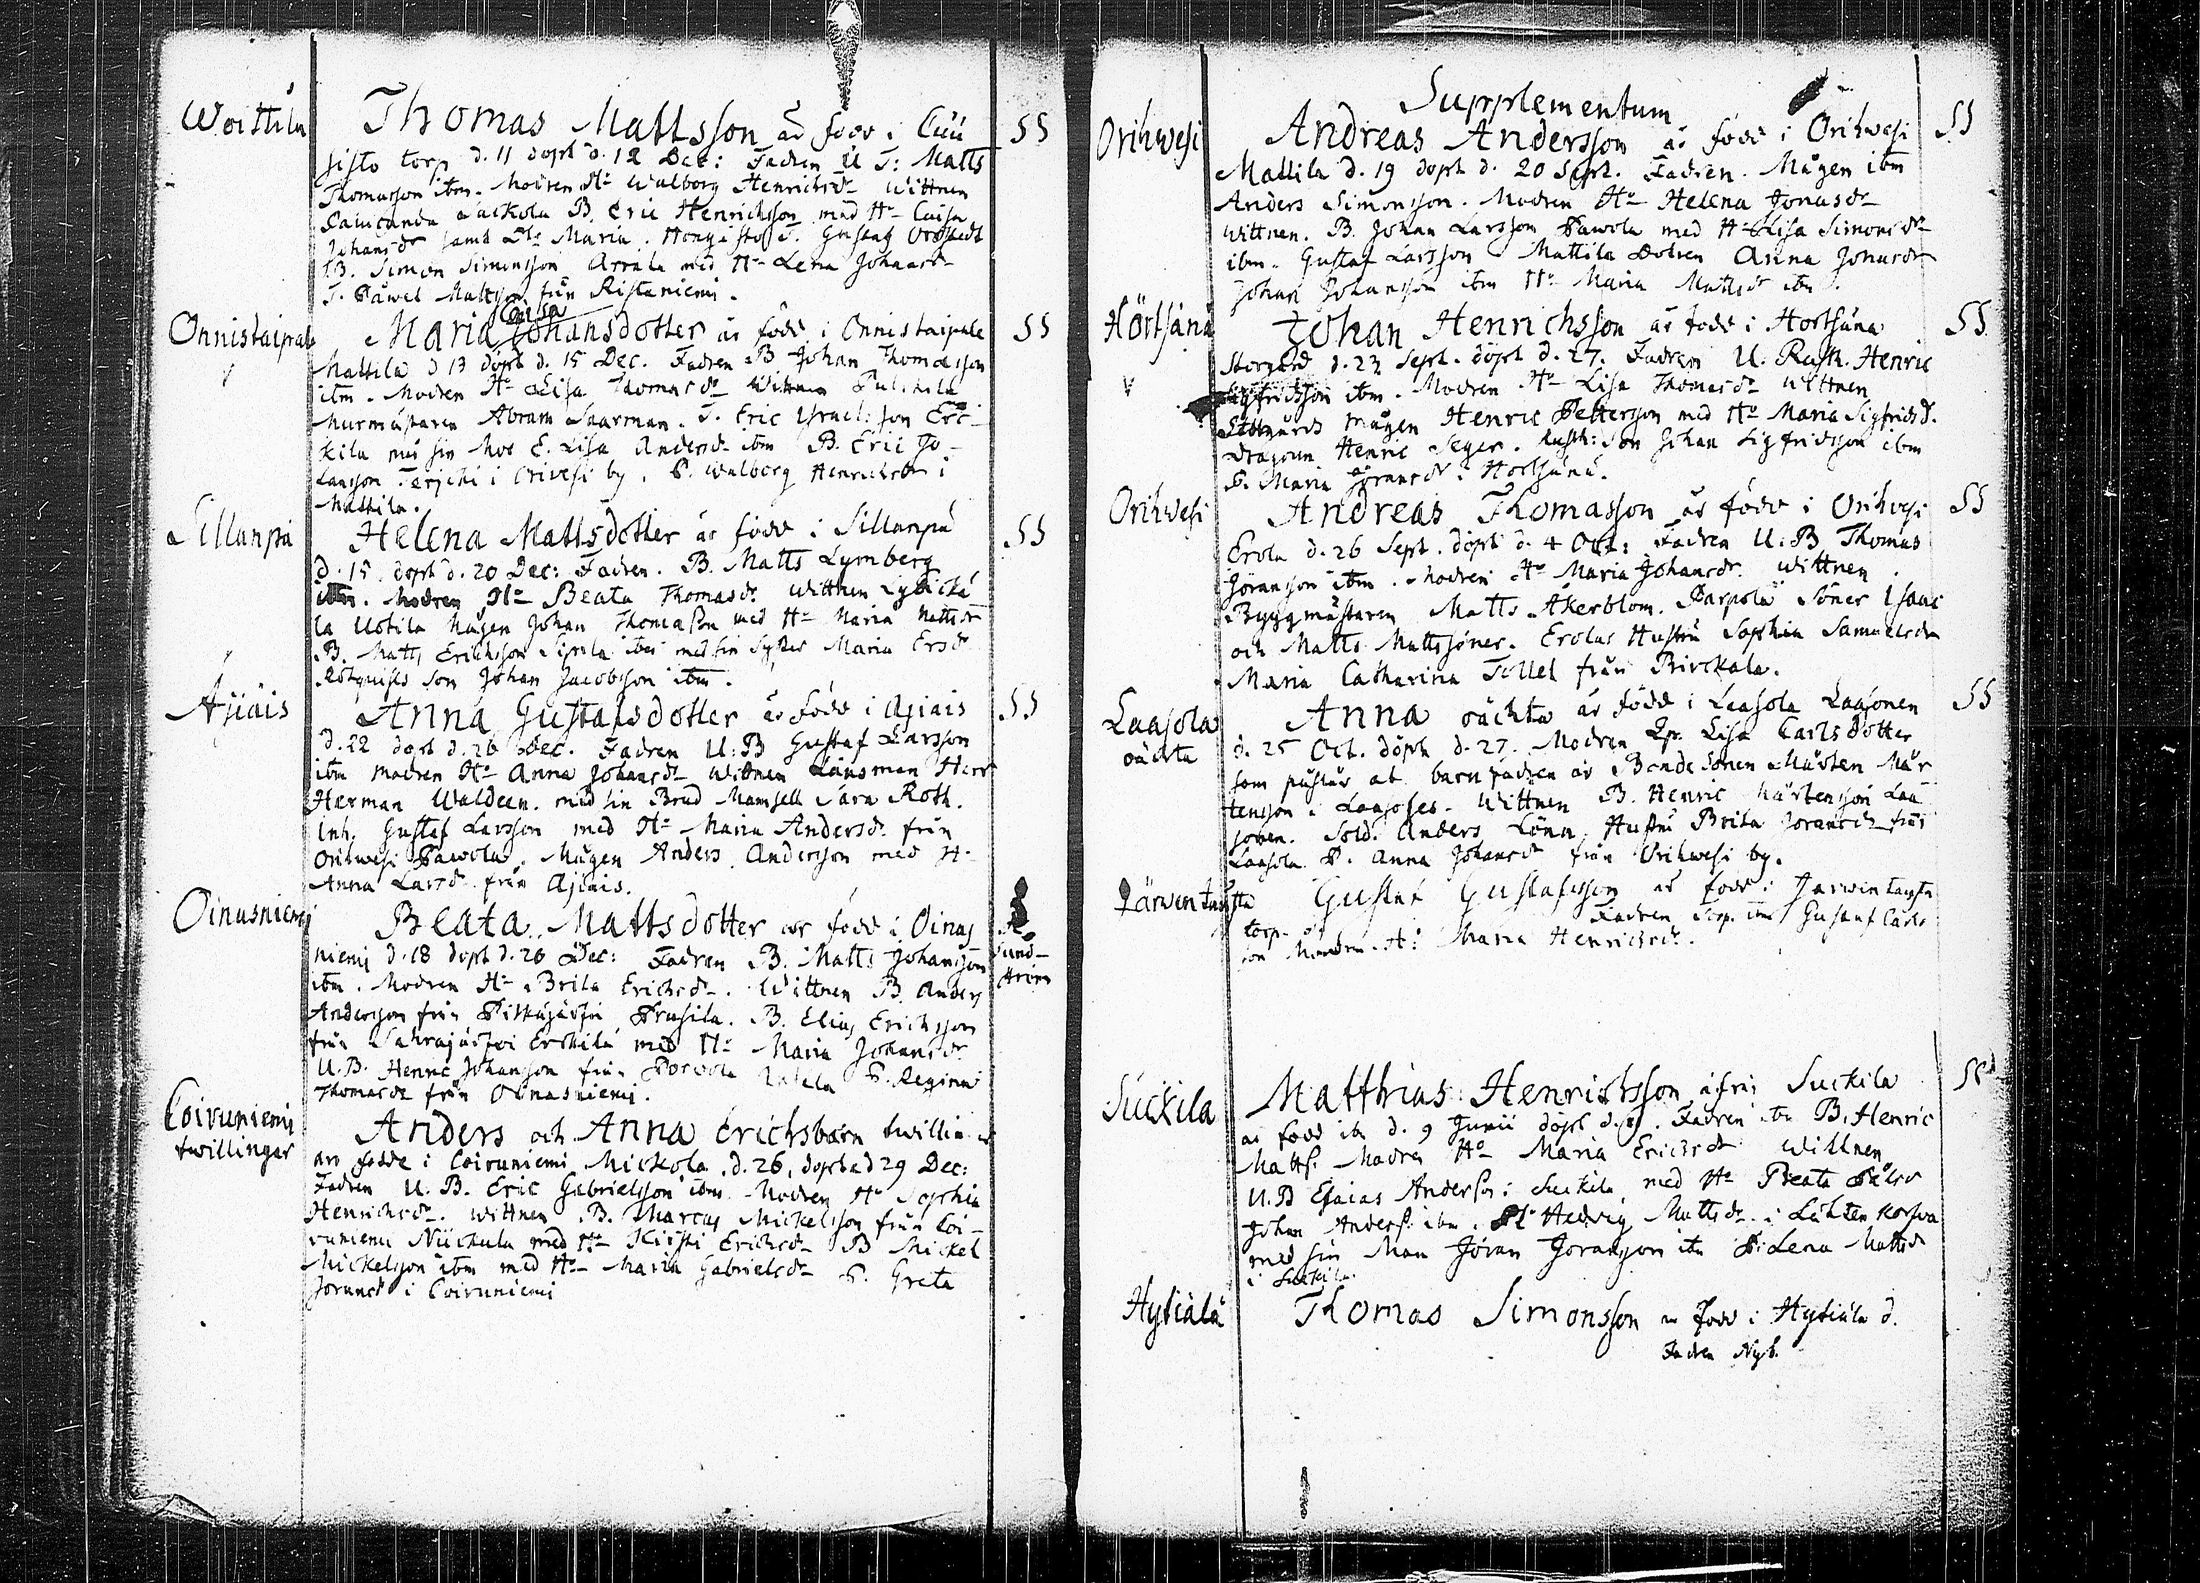 Woittila
Thomas Mattsson är född i Cuu
sisto torp d. 11 döpt d. 12 Dec: Fadren U T: Matts
Thomasson ibm. Modren Hu Walborg Henrichsdr Wittnen
B. Eric Henrichsson med Hu Caisa
Johansdr samt Maria. Gustaf
B. Simon Simonsson Arrala med Hu Lena Johansdr
T. Påwel Mattsson från Ristaniemi.
Onnistaipale
Caisa
Maria Johansdotter är född i Onnistaipale
Mattila d 13 döpt d. 15 Dec. Fadren B Johan Thomasson
ibm. Modren Hu Lisa Thomasdr Wittnen
Murmästaren Abram Saarman. T. Eric Israelsson Erc-
kila med sin Mor E. Lisa Andersdr ibm B. Eric Jo-
hansson i Orivesi by. P. Walborg Henrichsdr i
Mattila.
Sillanpä
Helena Mattsdotter är född i Sillanpä
d. 15. döpt d. 20 Dec: Fadren. B. Matts Lymberg
ibm. Modren Hu Beata Thomasdr. Wittnen
la Uotila Mågen Johan Thomasson med Hu Maria Mattsdr
B. Matts Erichsson Sipila ibm med sin Syster Maria Ersdr
son Johan Jacobsson ibm.
Ajiäis
Anna Gustafsdotter är född i Ajiäis
d. 22 döpt d. 26 Dec. Fadren U: B Gustaf Larsson
ibm modren Hu Anna Johansdr Wittnen Länsman Herr
Herman Waldeen. med sin Brud Mamsell Sara Roth.
Inh. Gustaf Larsson med Hu Maria Andersdr från
Orihwesi Pawola. Mågen Anders Andersson med H-
Anna Larsdr från Ajiäis.
Oinasniemi
Beata Mattsdotter är född i Oinas
niemi d. 18 döpt d. 26 Dec: Fadren B. Matts Johansson
ibm. Modren Hu Brita Erichsdr. Wittnen B. Anders
Andersson från Pitkäjärfvi Prusila. B. Elias Erichsson
från Sahrajärfvi Erckilä med Hu Maria Johansdr
U. B. Henric Johansson från Porvola P. Regina
Thomasdr från Oinasniemi.
Sund-
ström
Coivuniemi
twillingar
Anders och Anna Erichsbarn twillin
är födde i Coivuniemi Mickola d. 26. döpta d 29 Dec:
Fadren U. B. Eric Gabrielsson ibm Modren Hu Sophia
Henrichsdr. Wittnen B. Marcus Mickelsson från Coi-
vuniemi med Hu Kirsti Erichsdr B Mickel
Mickelsson ibm med Hu Maria Gabrielsdr P. Greta
Joransdr i Coivuniemi
Supplementum
Orihwesi
Andreas Andersson är född i Orihwesi
Mattila d. 19 döpt d. 20 Sept. Fadren. Mågen ibm
Anders Simonsson. Modren Hu Helena Jonasdr
Wittnen. B. Johan Larsson Pawola med Hu Lisa Simonsdr
ibm. Gustaf Larsson Mattila Anna Jonasdr
Johan Johansson ibm Hu Maria Mattsdr ibm.
Hörtsänä
Johan Henrichsson är född i Hörtsänä
Storgård d. 23 Sept. döpt d. 27. Fadren U. Rusth. Henric
Sigfridsson ibm. Modren Hu Lisa Thomasdr Wittnen
mågen Henric Pettersson med Hu Maria Sigfridsd.
Dragoun Henric Seger. Rusth: son Johan Sigfridsson ibm
P. Maria Göransdr i Hörtsänä.
Orihwesi
Andreas Thomasson är född i Orihwesi
Erola d. 26 Sept. döpt d. 4 Oct: Fadren U: B Thomas
Göransson ibm. Modren Hu Maria Johansdr. Wittnen
Byggmästaren Matts Åkerblom. Parpola Söner Isaac
och Matts Mattssöner. Erolas Hustru Sophia Samuelsdr
Maria Catharina Tollet från Birckala.
Laasola
oächta
Anna oächta är född i Laasola Laasonen
d. 25 Oct. döpt d. 27. Modren Lisa Carlsdotter
som påstår at barnfadren är Bonde Sonen Mårten Mår
tensson i Laasoses. Wittnen B. Henric Mårtensson Laa
sonen. Sold. Anders Lönn. Hustru Brita Joransdr från
Laasola P. Anna Johansdr från Orihwesi by.
Järwentausta
Gustaf Gustafsson är född i Jarwentausta
torp. Fadren Torp. ibm Gustaf Carls
son Modren. H: Maria Henrichsdr.
Suckila
Matthias Henrichsson ifrån Suckila
är född ibm d. 9 Junii döpt d. Fadren ibm B. Henric
Matts. Modren Hu Maria Erichsdr Wittnen
U. B Esaias Anderss. i Suckila med Hu Beata
Johan Anderss. ibm. Hedvig Mattsdr. i
med sin Man Jöran Joransson ibm P: Lena Mattsdr
i Suckila.
Hytiälä
Thomas Simonsson är född i Hytiälä d.
Fadren Nyb.